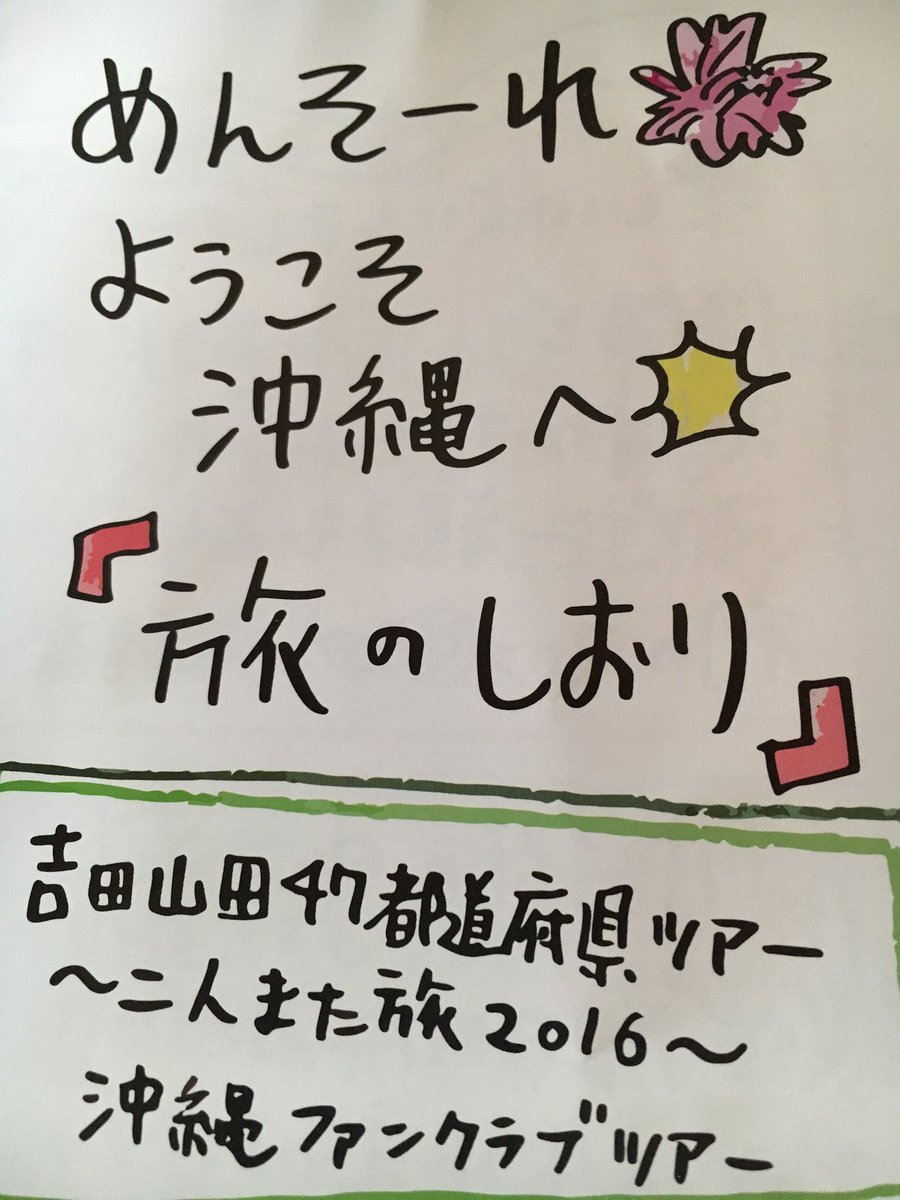 めんそーれ
ようこそ
沖縄へ
『旅のしおり』
吉田山田47都道府県ツアー
〜二人また旅2016〜
沖縄ファンクラブツアー